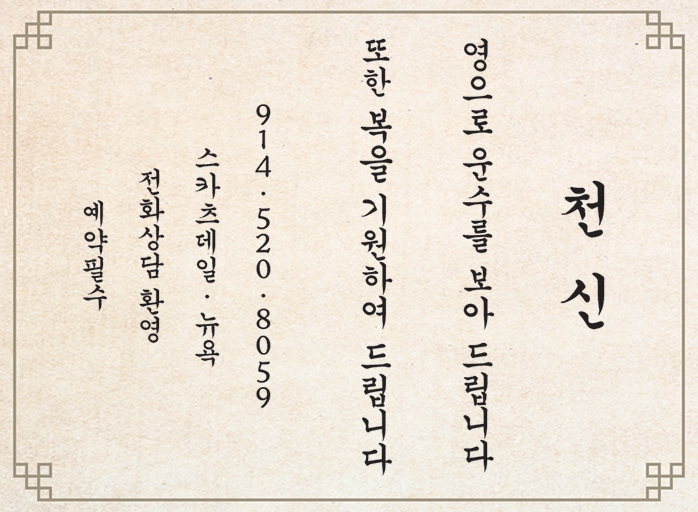 천 신
영으로 운수를 보아 드립니다
또한 복을 기원하여 드립니다
914·520·8059
스카츠데일·뉴욕
전화상담 환영
예약필수